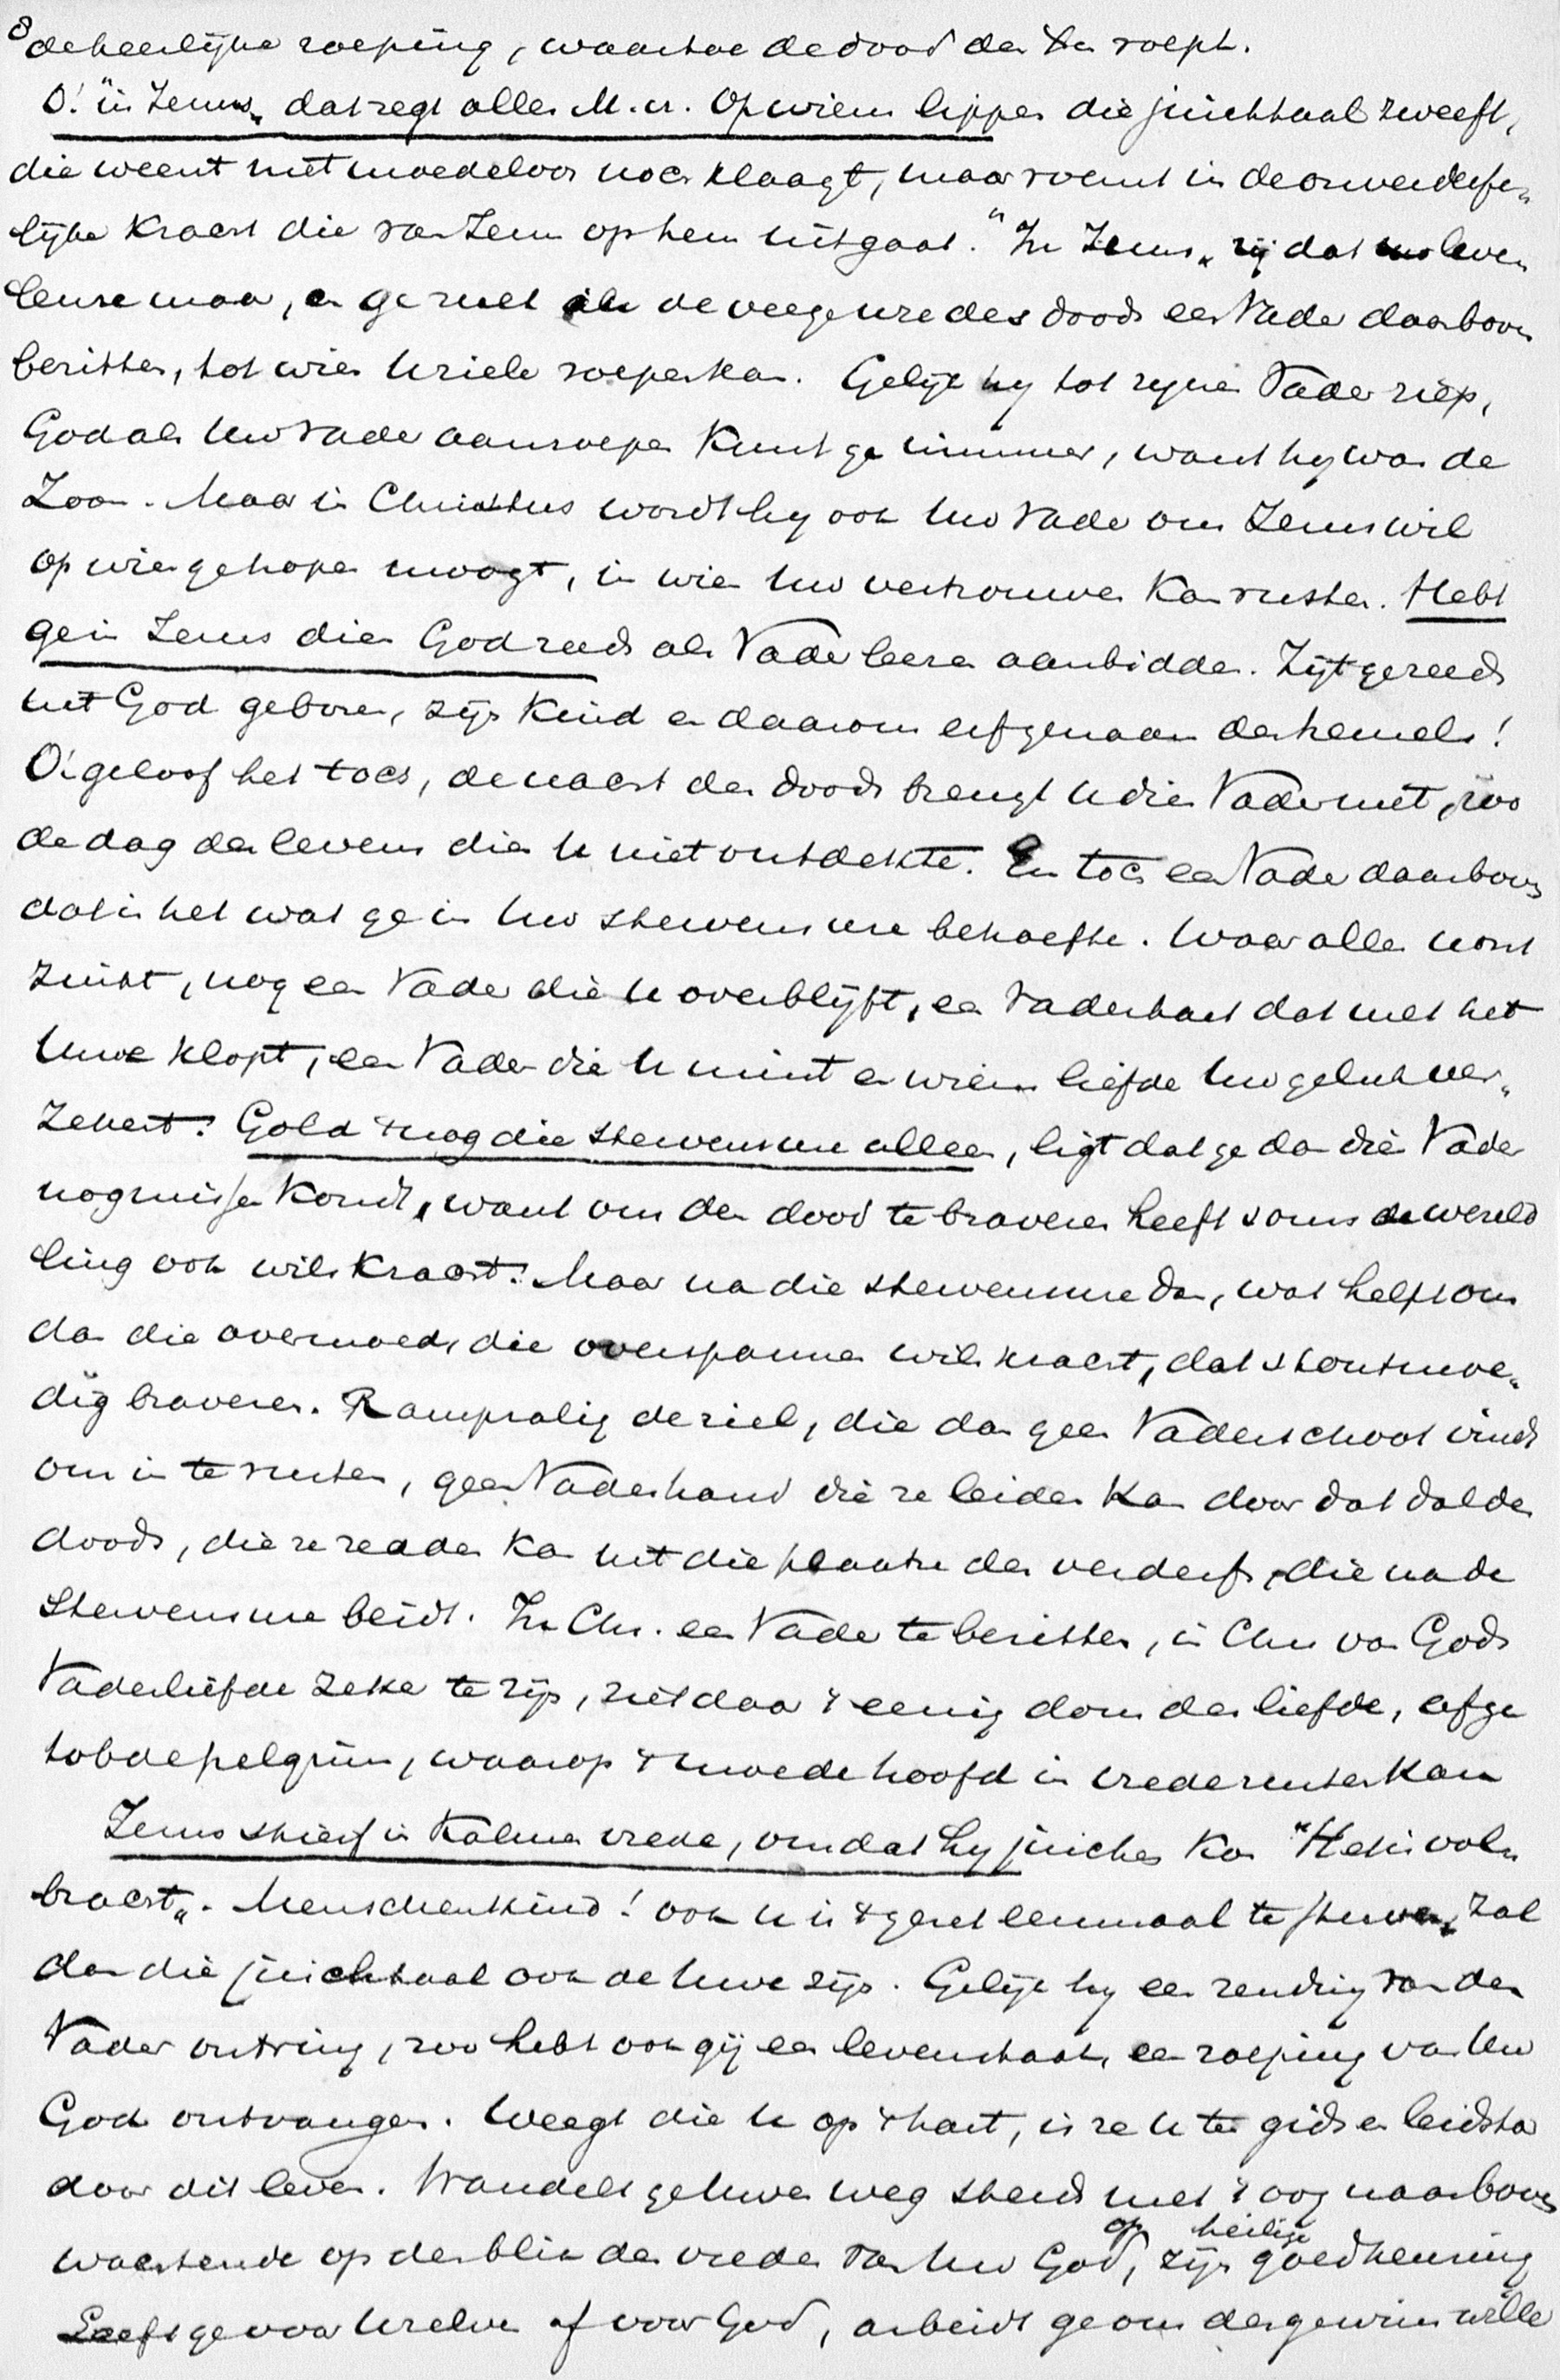 8 de heerlijke roeping, waartoe de dood des Hn roept.
O! "in Jezus" dat zegt alles M. Gel. Op wiens lippen die juichtaal zweeft,
die weent niet moedeloos noch klaagt, maar roemt in de onverderfe-
lijke kracht die van Jezus op hem uitgaat. "In Jezus" zij dat uw leven
leuze maar, en ge zult als de veege ure des doods een Vader daarboven
bezitten, tot wien Uw ziele roepen kan. Gelijk hij tot zijnen Vader riep,
God als Uw Vader aanroepen kunt ge nimmer, want hij was de
Zoon. Maar in Christus wordt hij ook Uw Vader om Jezus wil
op wien ge hopen moogt, in wien Uw vertrouwen kan rusten. Hebt
ge in Jezus dien God reeds als Vader leeren aanbidden. Zijt ge reeds
uit God geboren, zijn kind en daarom erfgenaam des hemels!
O! geloof het toch, de nacht des doods brengt U dien Vader niet, zoo
de dag des levens dien U niet ontdekte. En toch een Vader daarboven
dat is het wat ge in Uw stervensure behoefte. Waar alles U ont
zinkt, nog een Vader die U overblijft, een Vaderhart dat met het
Uwe klopt, een Vader die U mint en wiens liefde Uw geluk ver-
zekert! Gold 't nog die stervensure alleen, ligt dat ge dan dien Vader
nog missen kondt, want om den dood te braveren heeft soms de wereld
ling ook wilskracht! Maar na die stervensure dan, wat helpt ons
dan die overmoed, die overspannen wilskracht, dat stoutmoe-
dig braveren. Rampzalig de ziel, die dan geen Vaderschoot vindt
om in te rusten, geen Vaderhand die ze leiden kan door dat dal des
doods, die ze redden kan uit die plaatse des verderfs, die na de
stervensure beidt. In Chr. een Vader te bezitten, in Chr van Gods
Vaderliefde zeker te zijn, ziet daar 't eenig dons der liefde, afge
tobde pelgrim, waarop 't moede hoofd in vrede rusten kan
Jezus stierf in kalmen vrede, omdat hij juichen kon "Het is vol-
bracht". Menschenkind! ook U is 't gezet eenmaal te sterven, zal
dan die juichtaal ook de Uwe zijn. Gelijk hij een zending van den
Vader ontving, zoo hebt ook gij een levenstaak, een roeping van Uw
God ontvangen. Weegt die U op 't hart, is ze U ten gids en leidsta
door dit leven. Wandelt ge Uwen weg steeds met 't oog naar boven
wachtende op den blik des vredes van Uw God, op zijn heilige goedkeuring
Leeft ge voor U zelven of voor God, arbeidt ge om des gewins wille